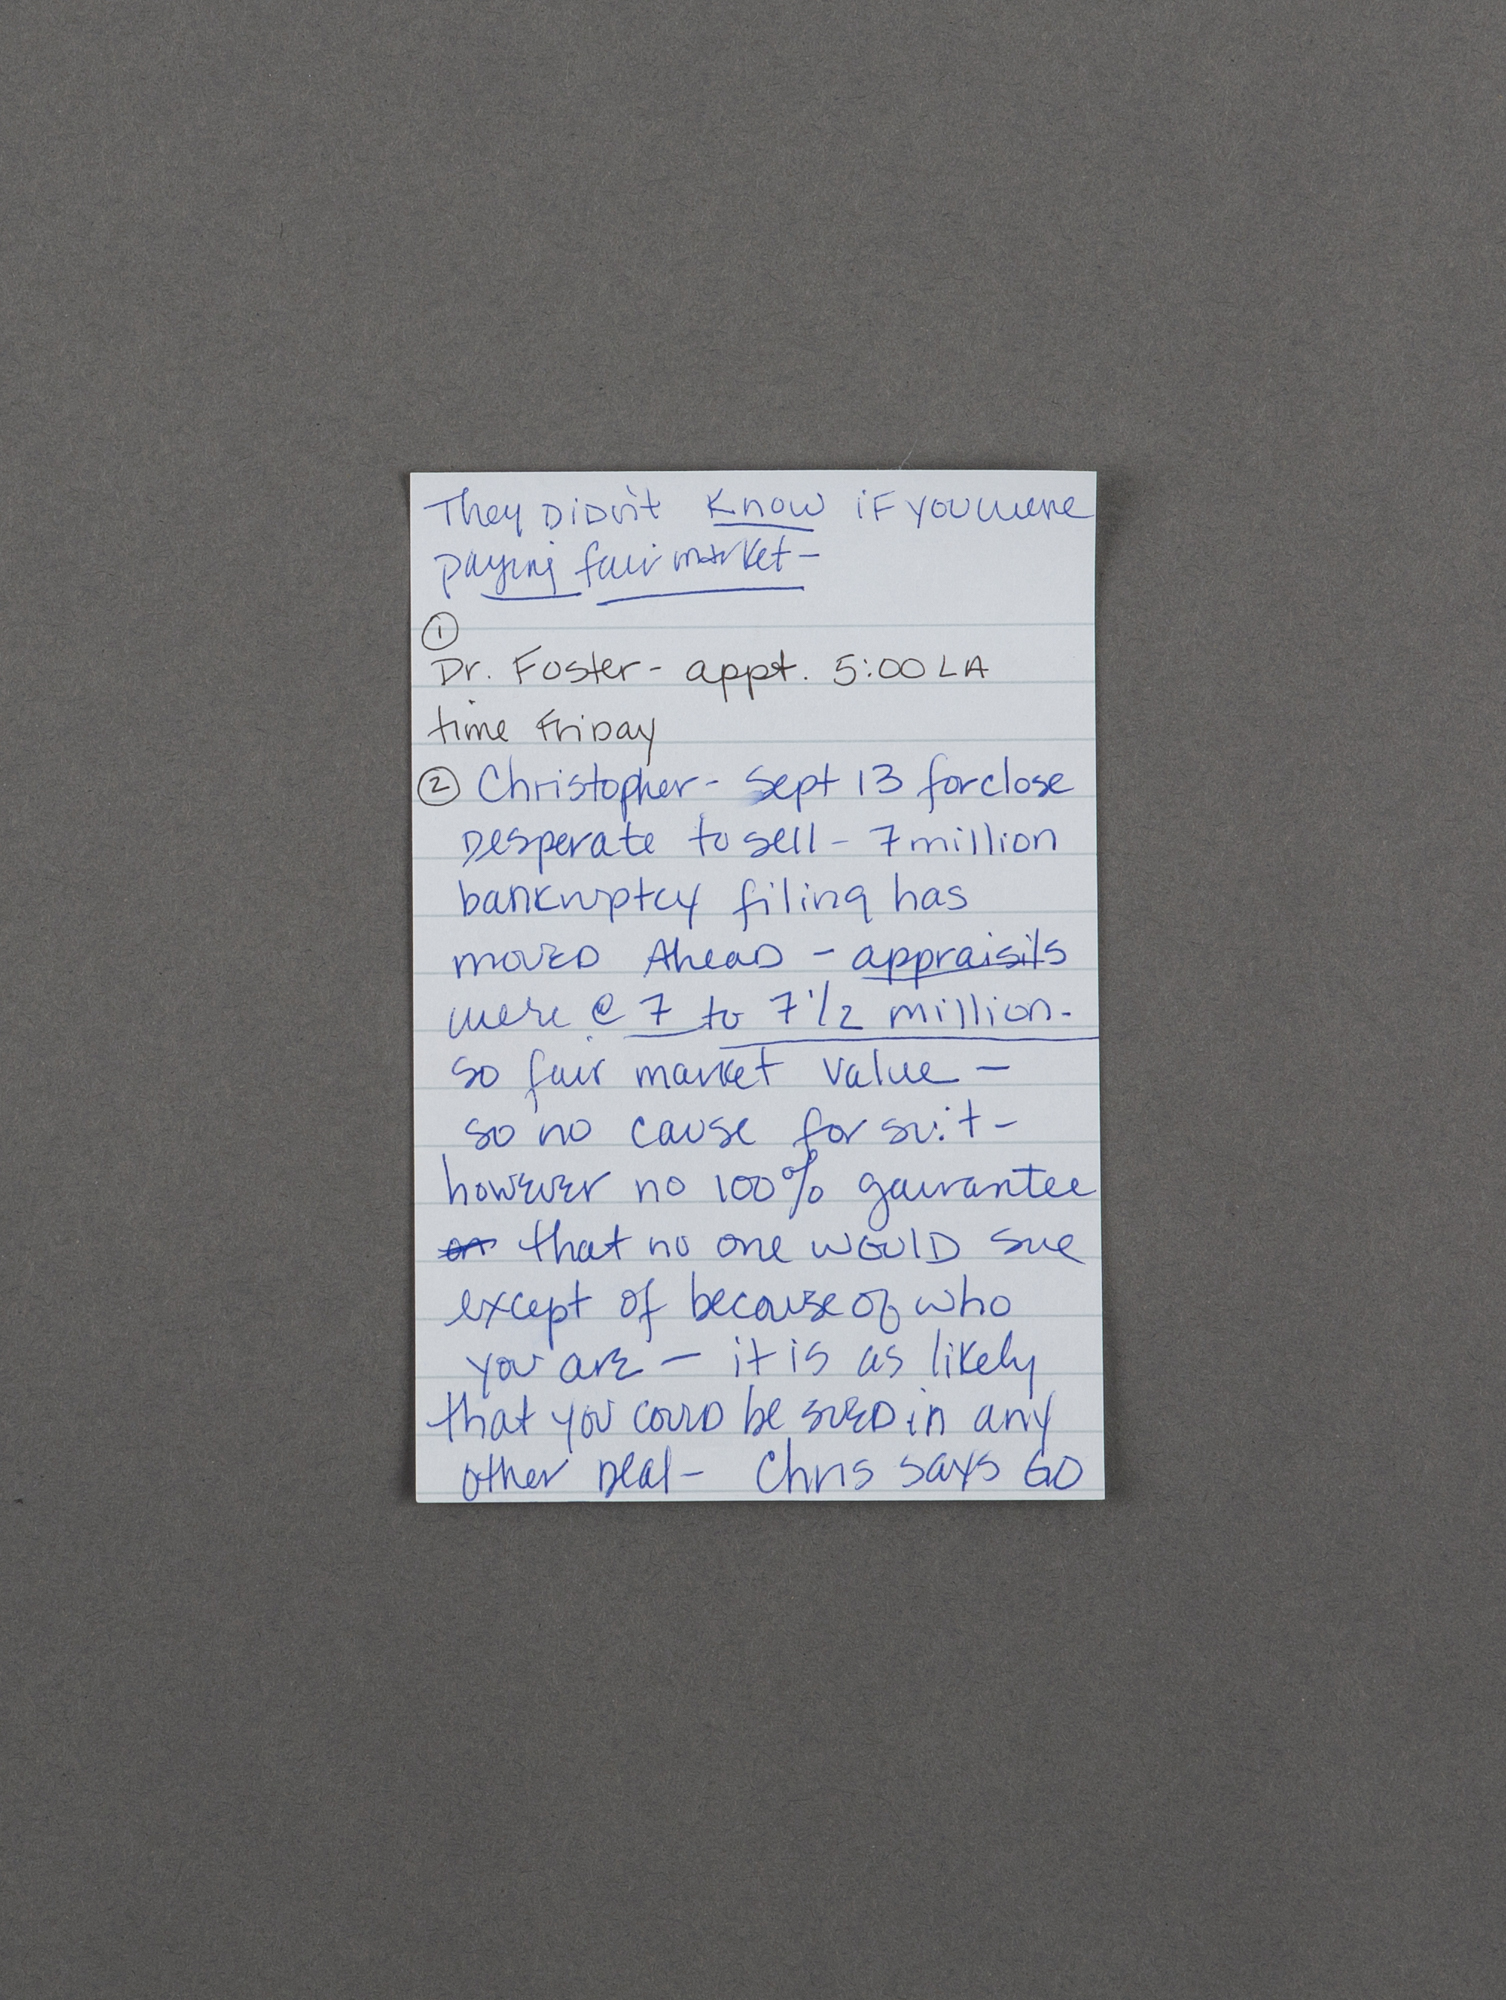 They Didn't Know if you were
paying fair market-
①
Dr. Foster- appt. 5:00 LA
time Friday
② Christopher- Sept 13 forclose
Desperate to sell - 7 million
bankruptcy filing has
moved Ahead - appraisils
were @ 7 to 7 1/2 million.
so fair market value -
so no cause for suit -
however no 100% gaurantee
that no one would sue
except of because of who
you are - it is as likely
that you could be sued in any
other Deal - Chris says GO